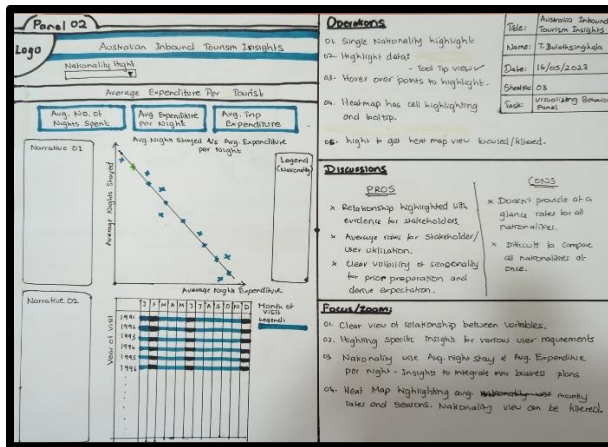 Panel 02
Logo
Australian Inbound Tourism Insights
Nationality Hight
Average Expenditure Per Tourist
Avg. No. of
Nights Spent
Avg. Expenditure
per Night
Avg. Trip
Expenditure
Narrative 01
Avg. Night Stayed v/s Avg. Expenditure
per Night
Legend
(Nationality)
Average Nights Stayed
Average Night Expenditure
Narrative 02
J F M A M J J A S O N D
Month of
Visit
Legends
Year of Visit
1991
1994
1995
1996
1995
1996
Operations
01. Single Nationality highlight
02. Highlight data:
- Tool Tip view
03. Hover over points to highlight.
04. Heatmap has cell highlighting
and tooltip.
05. hight to get heat map view focused/filtered.
Title: Australia Inbound
Tourism Insights
Name: T. Bulathsinghala
Date: 16/05/2023
Sheet No: 03
Task: Visualizing Behavior
Panel
Discussions
PROS
x Relationship highlighted with
evidence for stakeholders.
x Average rates for stakeholder/
user utilization.
x Clear visibility of seasonality
for prior preparation and
derive expectation.
CONS
x Doesn't provide at a
glance rates for all
nationalities.
x Difficult to compare
all nationalities at
once.
Focus/zoom:
01. Clear view of relationship between variables.
02. Highting specific insight for various user requirements
03 Nationality vise Avg. night stay & Avg. Expenditure
per night - Insights to integrate into business plans
04. Heat Map highlighting avg. monthly
rates and seasons. Nationality view can be filtered.